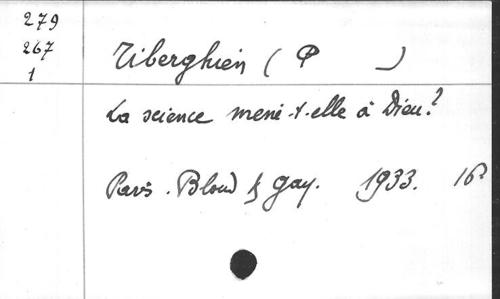 279
267
1
Tiberghien (P )
La science mène-t-elle à Dieu?
Paris. Bloud & Gay. 1933. 16°